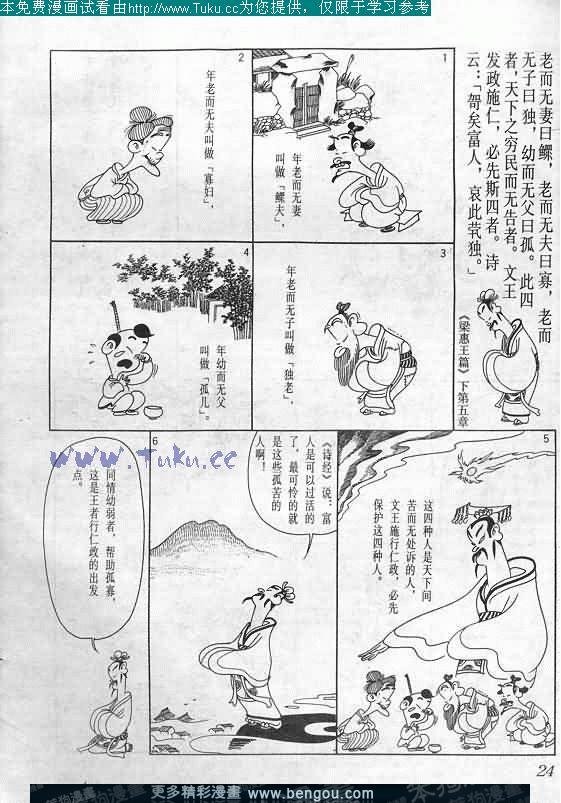 本免费漫画试看由http://www.Tuku.cc为您提供，仅限于学习参考
老而无妻曰鳏，老而无夫曰寡，老而
无子曰独，幼而无父曰孤。此四
者，天下之穷民而无告者。文王
发政施仁，必先斯四者。诗
云：「哿矣富人，哀此茕独。」
《梁惠王篇》下第五章
1
年老而无妻
叫做「鳏夫」，
2
年老而无夫叫做「寡妇」，
3
年老而无子叫做「独老」，
4
年幼而无父
叫做「孤儿」。
5
这四种人是天下间
苦而无处诉的人，
文王施行仁政，必先
保护这四种人。
6
《诗经》说：富
人是可以过活的
了，最可怜的就
是这些孤苦的
人啊！
同情幼弱者，帮助孤寡，
这是王者行仁政的出发
点。
www.Tuku.cc
24
更多精彩漫畫 www.bengou.com